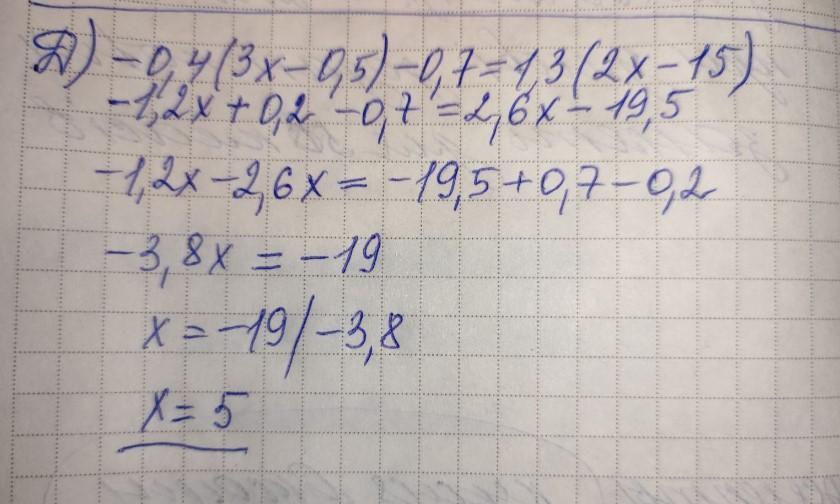 Д) -0,4(3x-0,5)-0,7=1,3(2x-15)
-1,2x+0,2-0,7=2,6x-19,5
-1,2x-2,6x=-19,5+0,7-0,2
-3,8x=-19
x=-19/-3,8
x=5